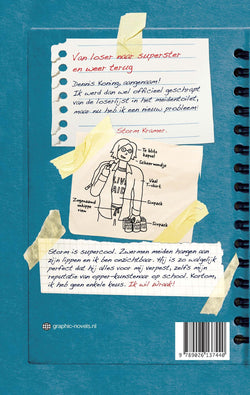 Van loser naar superster
en weer terug
Dennis Koning, aangenaam!
Ik werd dan wel officieel geschrapt
van de loserlijst in het meidentoilet,
maar nu heb ik een nieuw probleem:
Storm Kramer.
Te blits
kapsel
Vaal
t-shirt
Storm is supercool. Zwermen meiden hangen aan
zijn lippen en ik ben onzichtbaar. Hij is zo walgelijk
perfect dat hij alles voor mij verpest, zelfs mijn
reputatie van opper-kunstenaar op school. Kortom,
ik heb geen enkele keus. Ik wil Wraak!
graphic-novels.nl
9 789026 137440